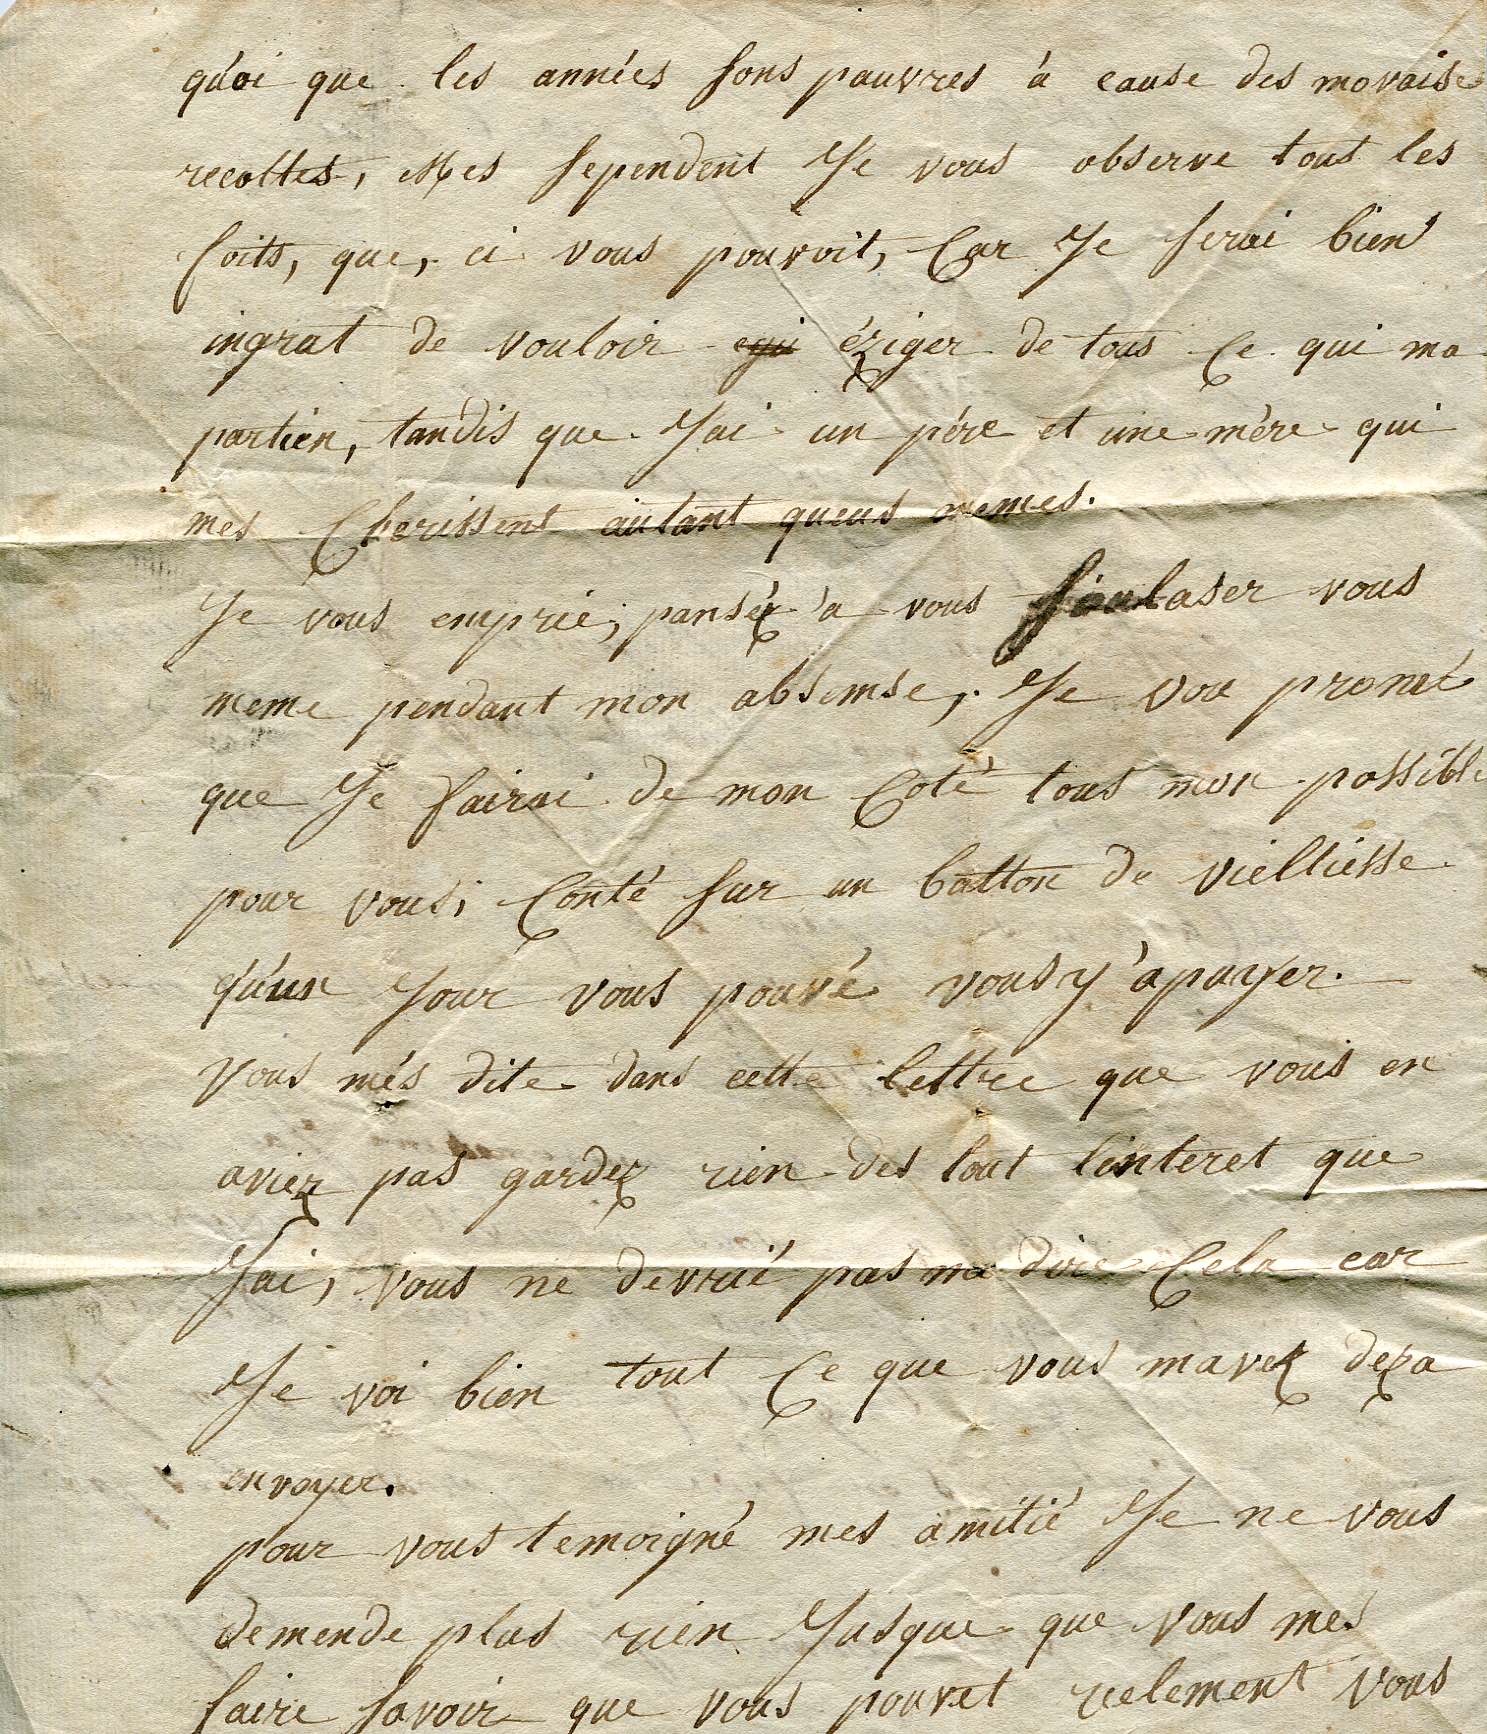 qu'oi que les années sons pauvres à cause des movaise
recoltes, Mes sependent Je vous observe tout les
foits, que, ci vous pouvoit, Car Je serai bien
ingrat de vouloir éziger de tous Ce qui ma
partien, tandis que Jai un père et une mère qui
mes Cherissent autant queus memes.
Je vous emprie, panséz à vous soulaser vous
meme pendant mon absemse, Je vou promét
que Je fairai de mon Coté tous mon possible
pour vous, Conté sur un batton de vielliesse
qu'un Jour vous pouvé vous y apuyer.
Vous més dite dans cette lettre que vous en
aviez pas gardez rien des tout linteret que
Jai, vous ne devrié pas me dire Cela car
Je voi bien tout Ce que vous mavez deza
envoyer.
pour vous temoigné mes amitié Je ne vous
demende plus rien Jusque que vous mes
faire savoir que vous pouvet rielement vous